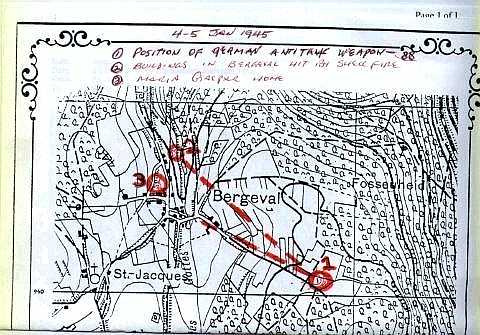 Page 1 of 1
4-5 JAN 1945
① POSITION OF GERMAN ANTITANK WEAPON - 88
② BUILDINGS IN BERGEVAL HIT BY SHELL FIRE
③ MARIA GASPAR HOME
2
3
Fosse
Bergeval
1
St-Jacques